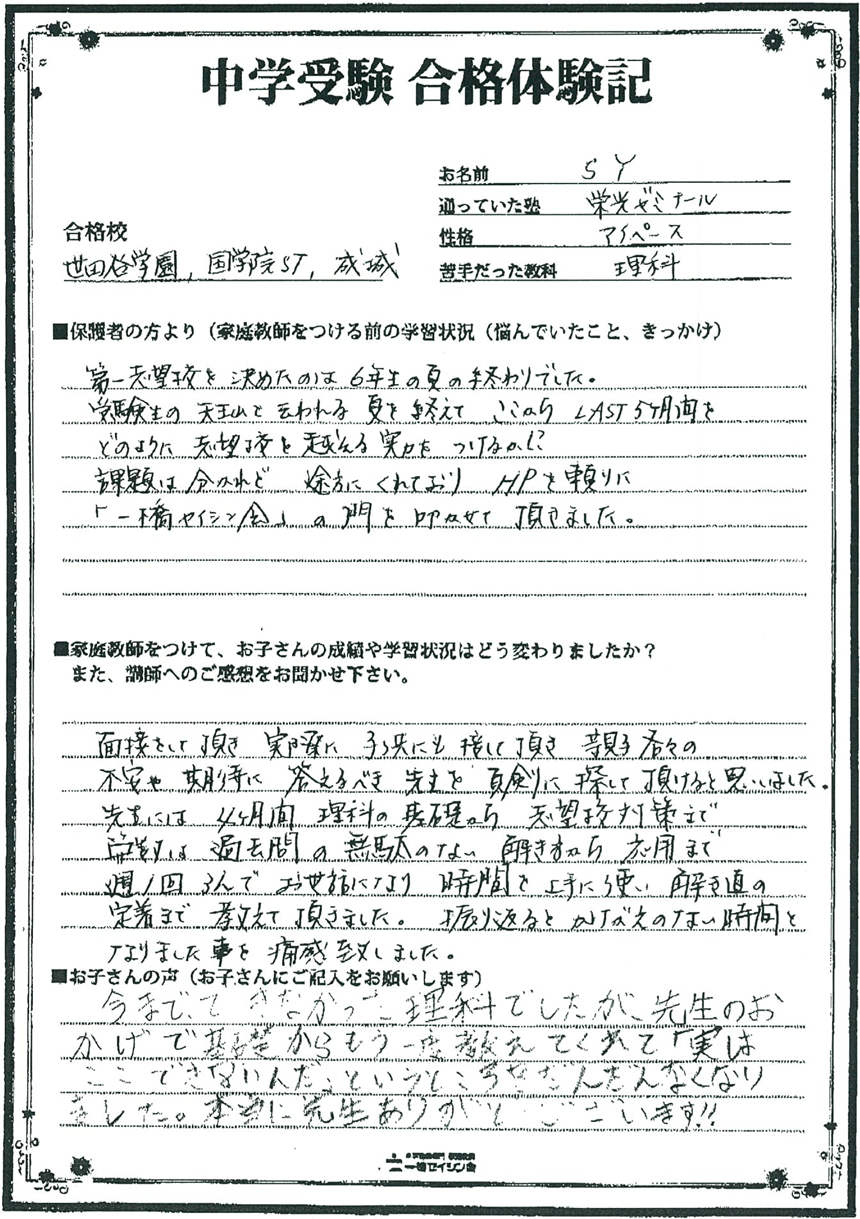 中学受験 合格体験記
お名前 SY
通っていた塾 栄光ゼミナール
性格 マイペース
苦手だった教科 理科
合格校
世田谷学園, 国学院ST, 成城
■保護者の方より（家庭教師をつける前の学習状況（悩んでいたこと、きっかけ）
第一志望校を決めたのは6年生の夏の終わりでした。
受験生の天王山と云われる夏を終えて ここから LAST5ヶ月間を
どのように志望校を越える実力を つけるか!?
課題は分かれど 途方にくれており HPを頼りに
「一橋セイシン会」の門を叩かせて頂きました。
■家庭教師をつけて、お子さんの成績や学習状況はどう変わりましたか？
また、講師へのご感想をお聞かせ下さい。
面接をして頂き 実際に 子供にも接して頂き 親子各々の
不安や 期待に 答えるべき 先生を 真剣に探して頂けると思いました。
先生には 4ヶ月間 理科の基礎から 志望校対策まで
算数は 過去問の無駄のない 解き方から 応用まで
週1回 お世話になり 時間を上手に使い 解き直の
定着まで 教えて頂きました。振り返ると かけがえのない時間と
なりました事を痛感致しました。
■お子さんの声（お子さんにご記入をお願いします）
今まで、できなかった理科でしたが、先生のお
かげで基礎からもう一度教えてくれて「実は
ここできないんだ」というところもだんだんなくなり
ました。本当に先生ありがとうございます!!
一橋セイシン会